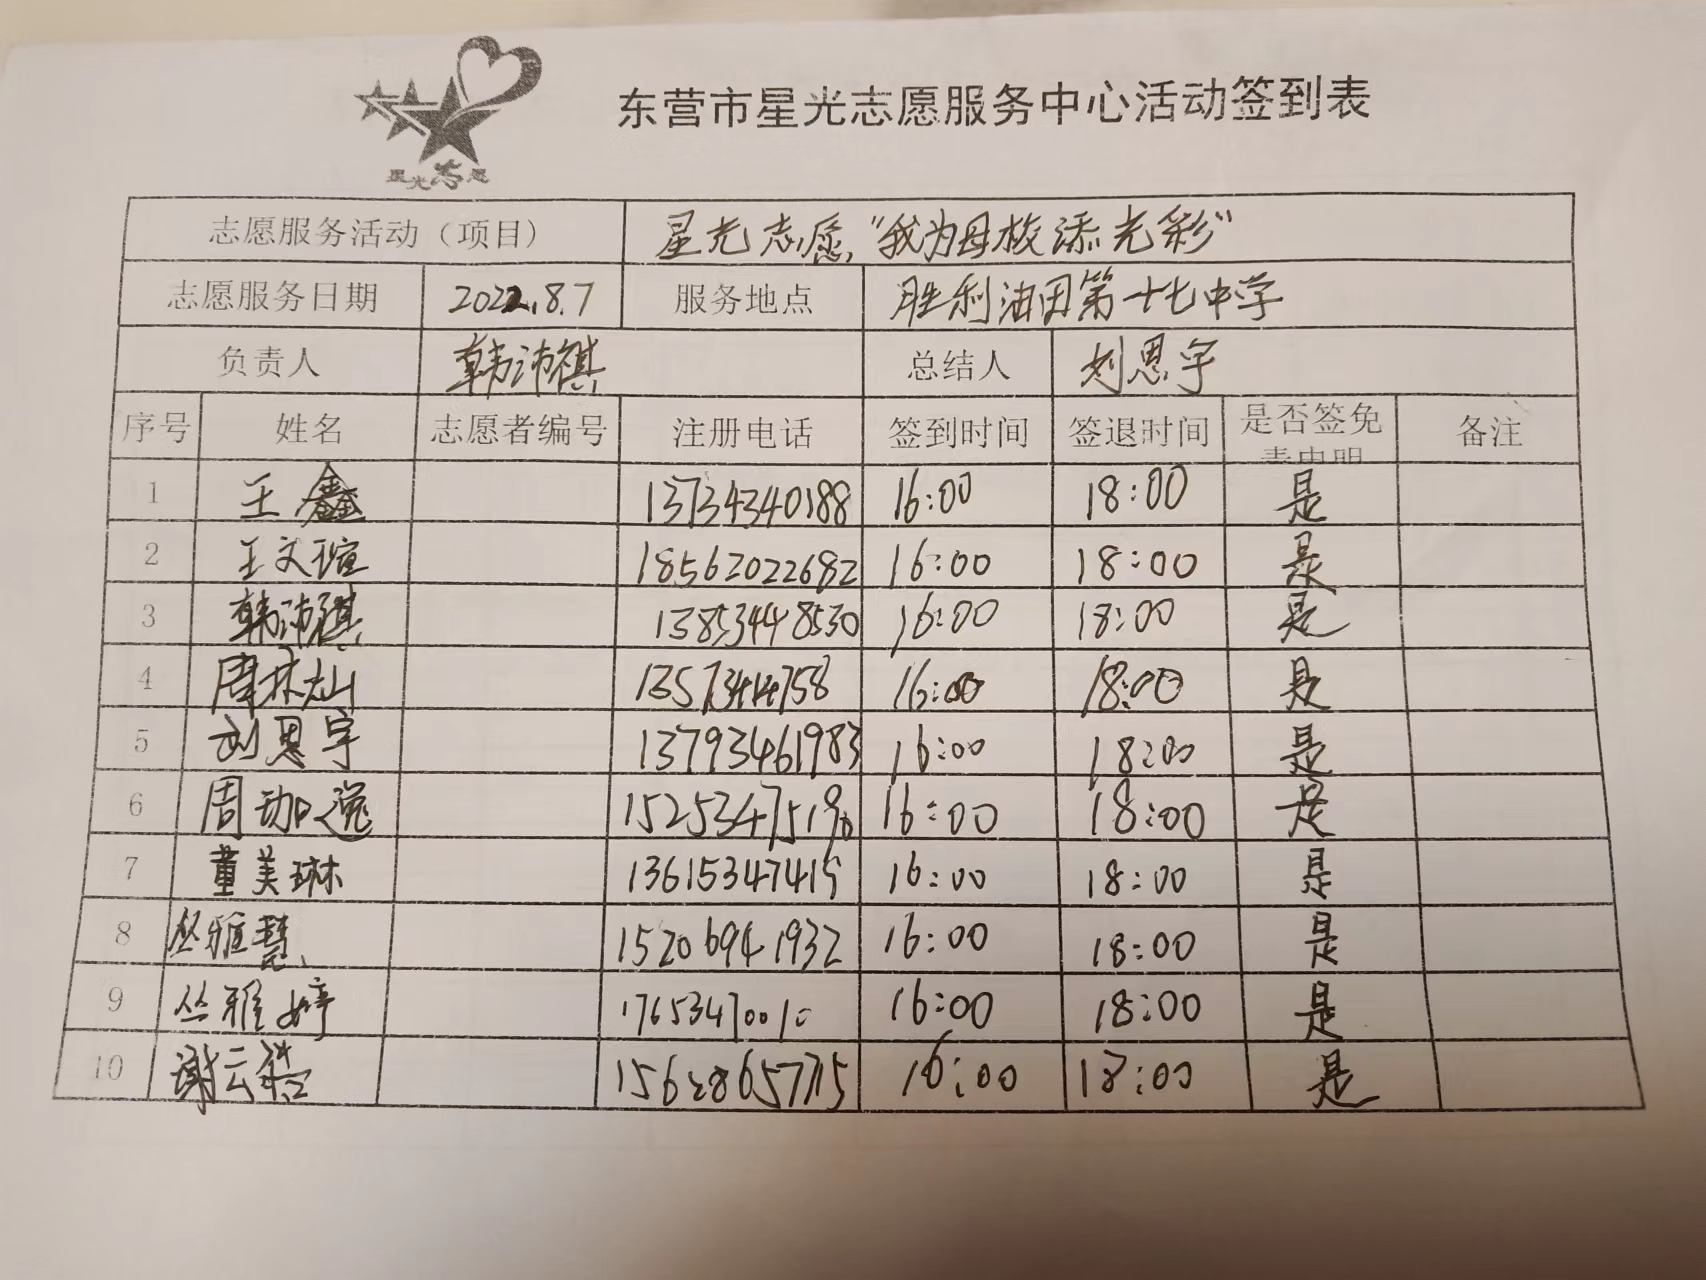 星光志愿
东营市星光志愿服务中心活动签到表
志愿服务活动（项目） 星光志愿“我为母校添光彩”
志愿服务日期 2022.8.7 服务地点 胜利油田第十七中学
负责人 韩沛祺 总结人 刘恩宇
序号 姓名 志愿者编号 注册电话 签到时间 签退时间 是否签免责申明 备注
1 王鑫 13734340188 16:00 18:00 是
2 王文瑄 18562022682 16:00 18:00 是
3 韩沛祺 13853448530 16:00 18:00 是
4 周林灿 16:00 18:00 是
5 刘恩宇 13793461983 16:00 18:00 是
6 周珈逸 16:00 18:00 是
7 董美琳 13615347415 16:00 18:00 是
8 丛雅慧 15206941932 16:00 18:00 是
9 丛雅婷 17653470010 16:00 18:00 是
10 谢云 16:00 18:00 是